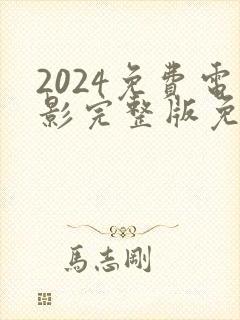 2024免費電
影完整版免
馬志剛